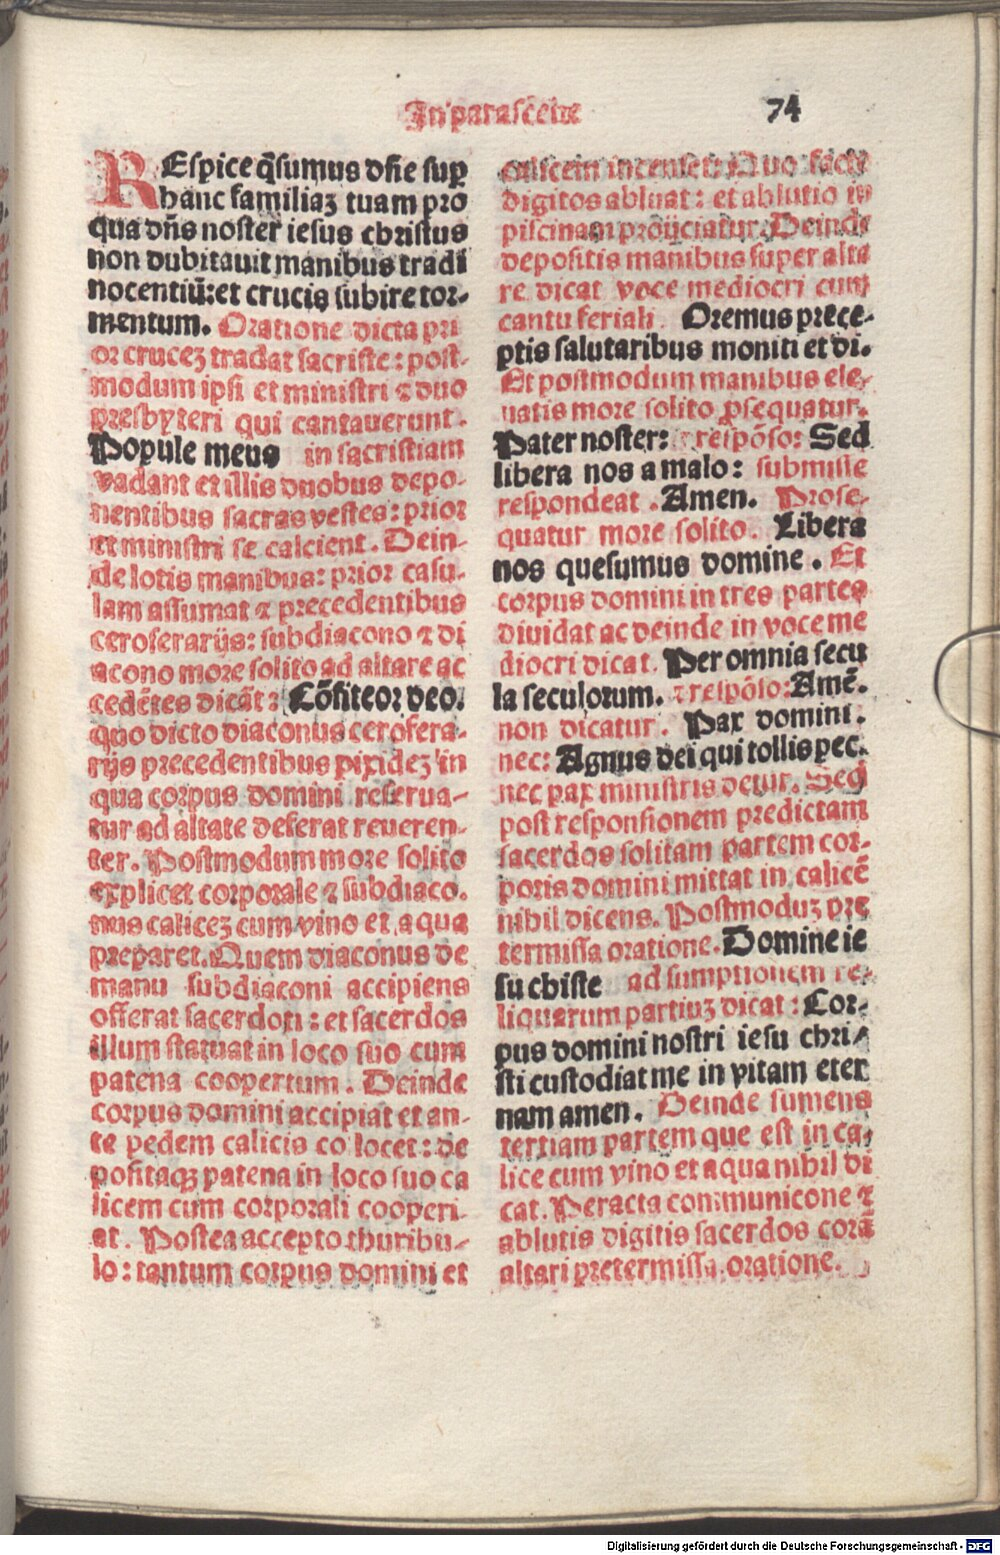 In parasceue
74
REspice q̄sumus dn̄e sup
hanc familiaʒ tuam pro
qua dn̄s noster iesus christus
non dubitauit manibus tradi
nocentiū: et crucis subire tor-
mentum. Oratione dicta pri
or cruceʒ tradat sacriste: post-
modum ipsi et ministri ⁊ duo
presbyteri qui cantauerunt.
Popule meus in sacristiam
vadant et illis duobus depo-
nentibus sacras vestes: prior
et ministri se calcient. Dein-
de lotis manibus: prior casu-
lam assumat ⁊ precedentibus
ceroferarijs: subdiacono ⁊ di
acono more solito ad altare ac
cedētes dicāt: Cōfiteor deo.
quo dicto diaconus cerofera-
rijs precedentibus pixideʒ in
qua corpus domini reserua-
tur ad altate deferat reueren-
ter. Postmodum more solito
explicet corporale ⁊ subdiaco.
nus caliceʒ cum vino et aqua
preparet. Quem diaconus de
manu subdiaconi accipiens
offerat sacerdoti: et sacerdos
illum statuat in loco suo cum
patena coopertum. Deinde
corpus domini accipiat et an-
te pedem calicis co locet: de
positaqʒ patena in loco suo ca
licem cum corporali cooperi-
at. Postea accepto thuribu-
lo: tantum corpus domini et
calicem incenset: Quo facto
digitos abluat: et ablutio in
piscinam proijciatur. Deinde
depositis manibus super alta
re dicat voce mediocri cum
cantu feriali. Oremus prece-
ptis salutaribus moniti et di.
Et postmodum manibus ele-
uatis more solito ꝓsequatur.
Pater noster: ⁊ respōso: Sed
libera nos a malo: submisse
respondeat. Amen. Prose-
quatur more solito. Libera
nos quesumus domine. Et
corpus domini in tres partes
diuidat ac deinde in voce me
diocri dicat. Per omnia secu
la seculorum. ⁊ respōso: Amē.
non dicatur. Pax domini.
nec: Agnus dei qui tollis pec.
nec pax ministris detur. Sed
post responsionem predictam
sacerdos solitam partem cor-
poris domini mittat in calicē
nihil dicens. Postmoduʒ pre
termissa oratione. Domine ie
su chiste ad sumptionem re-
liquarum partiuʒ dicat: Cor-
pus domini nostri iesu chri-
sti custodiat me in vitam eter
nam amen. Deinde sumens
tertiam partem que est in ca-
lice cum vino et aqua nihil di
cat. Peracta communicone ⁊
ablutis digitis sacerdos corā
altari pretermissa oratione.
Digitalisierung gefördert durch die Deutsche Forschungsgemeinschaft - DFG